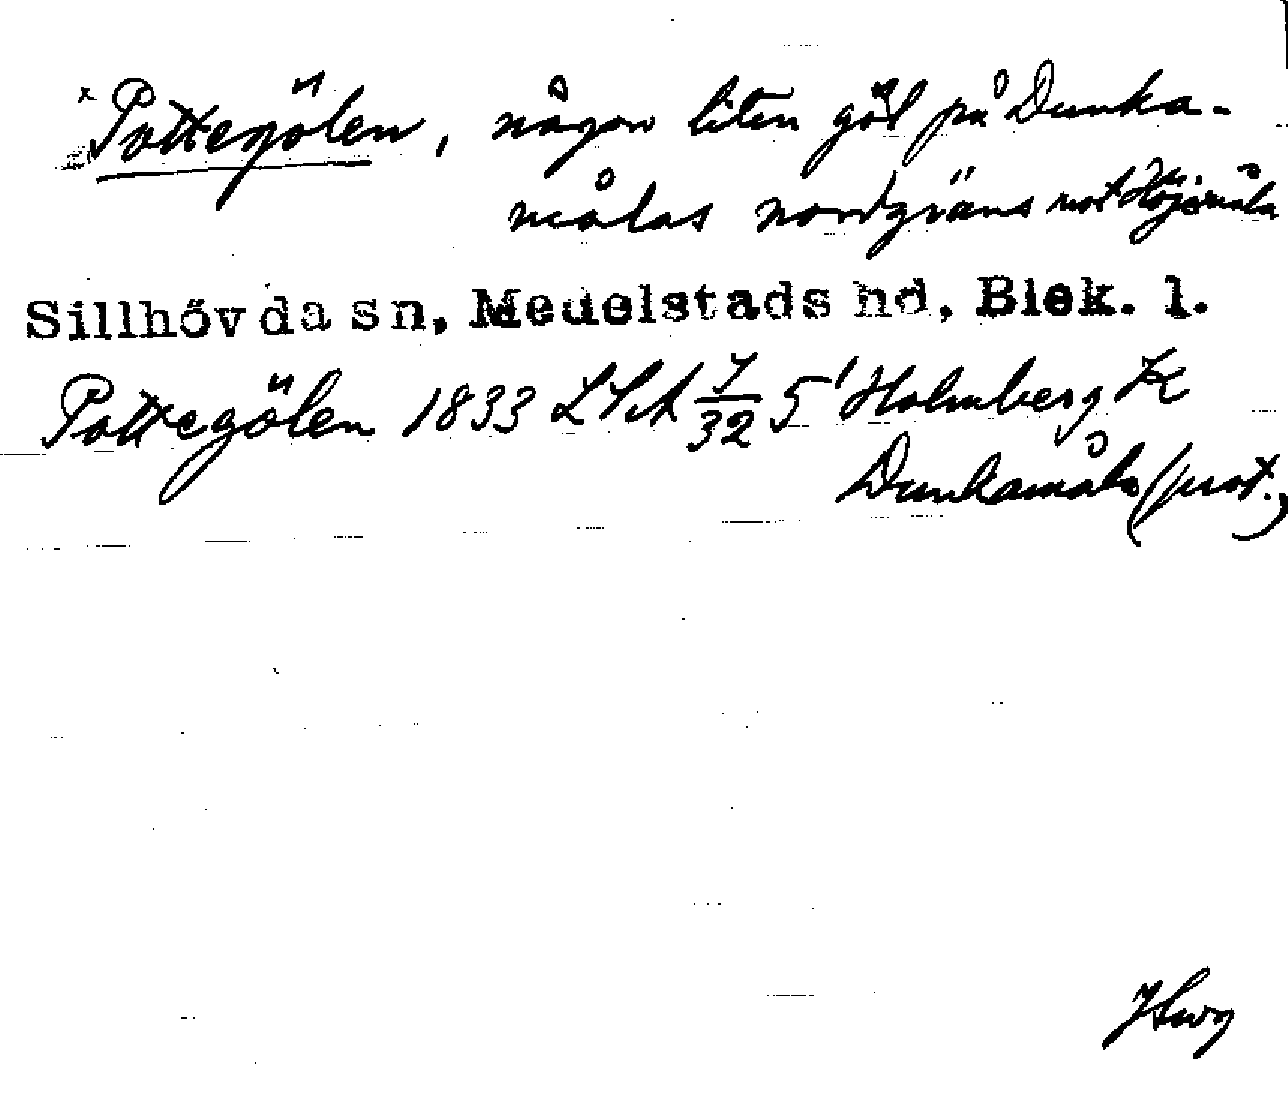 x Pottegölen, någon liten göl på Dunka-
målas nordgräns mot Höjsmåla
Sillhövda sn, Medelstads hd, Blek. l.
Pottegölen 1833 LSA 7/32 5' Holmberg K
Dunkamåla (prot.)